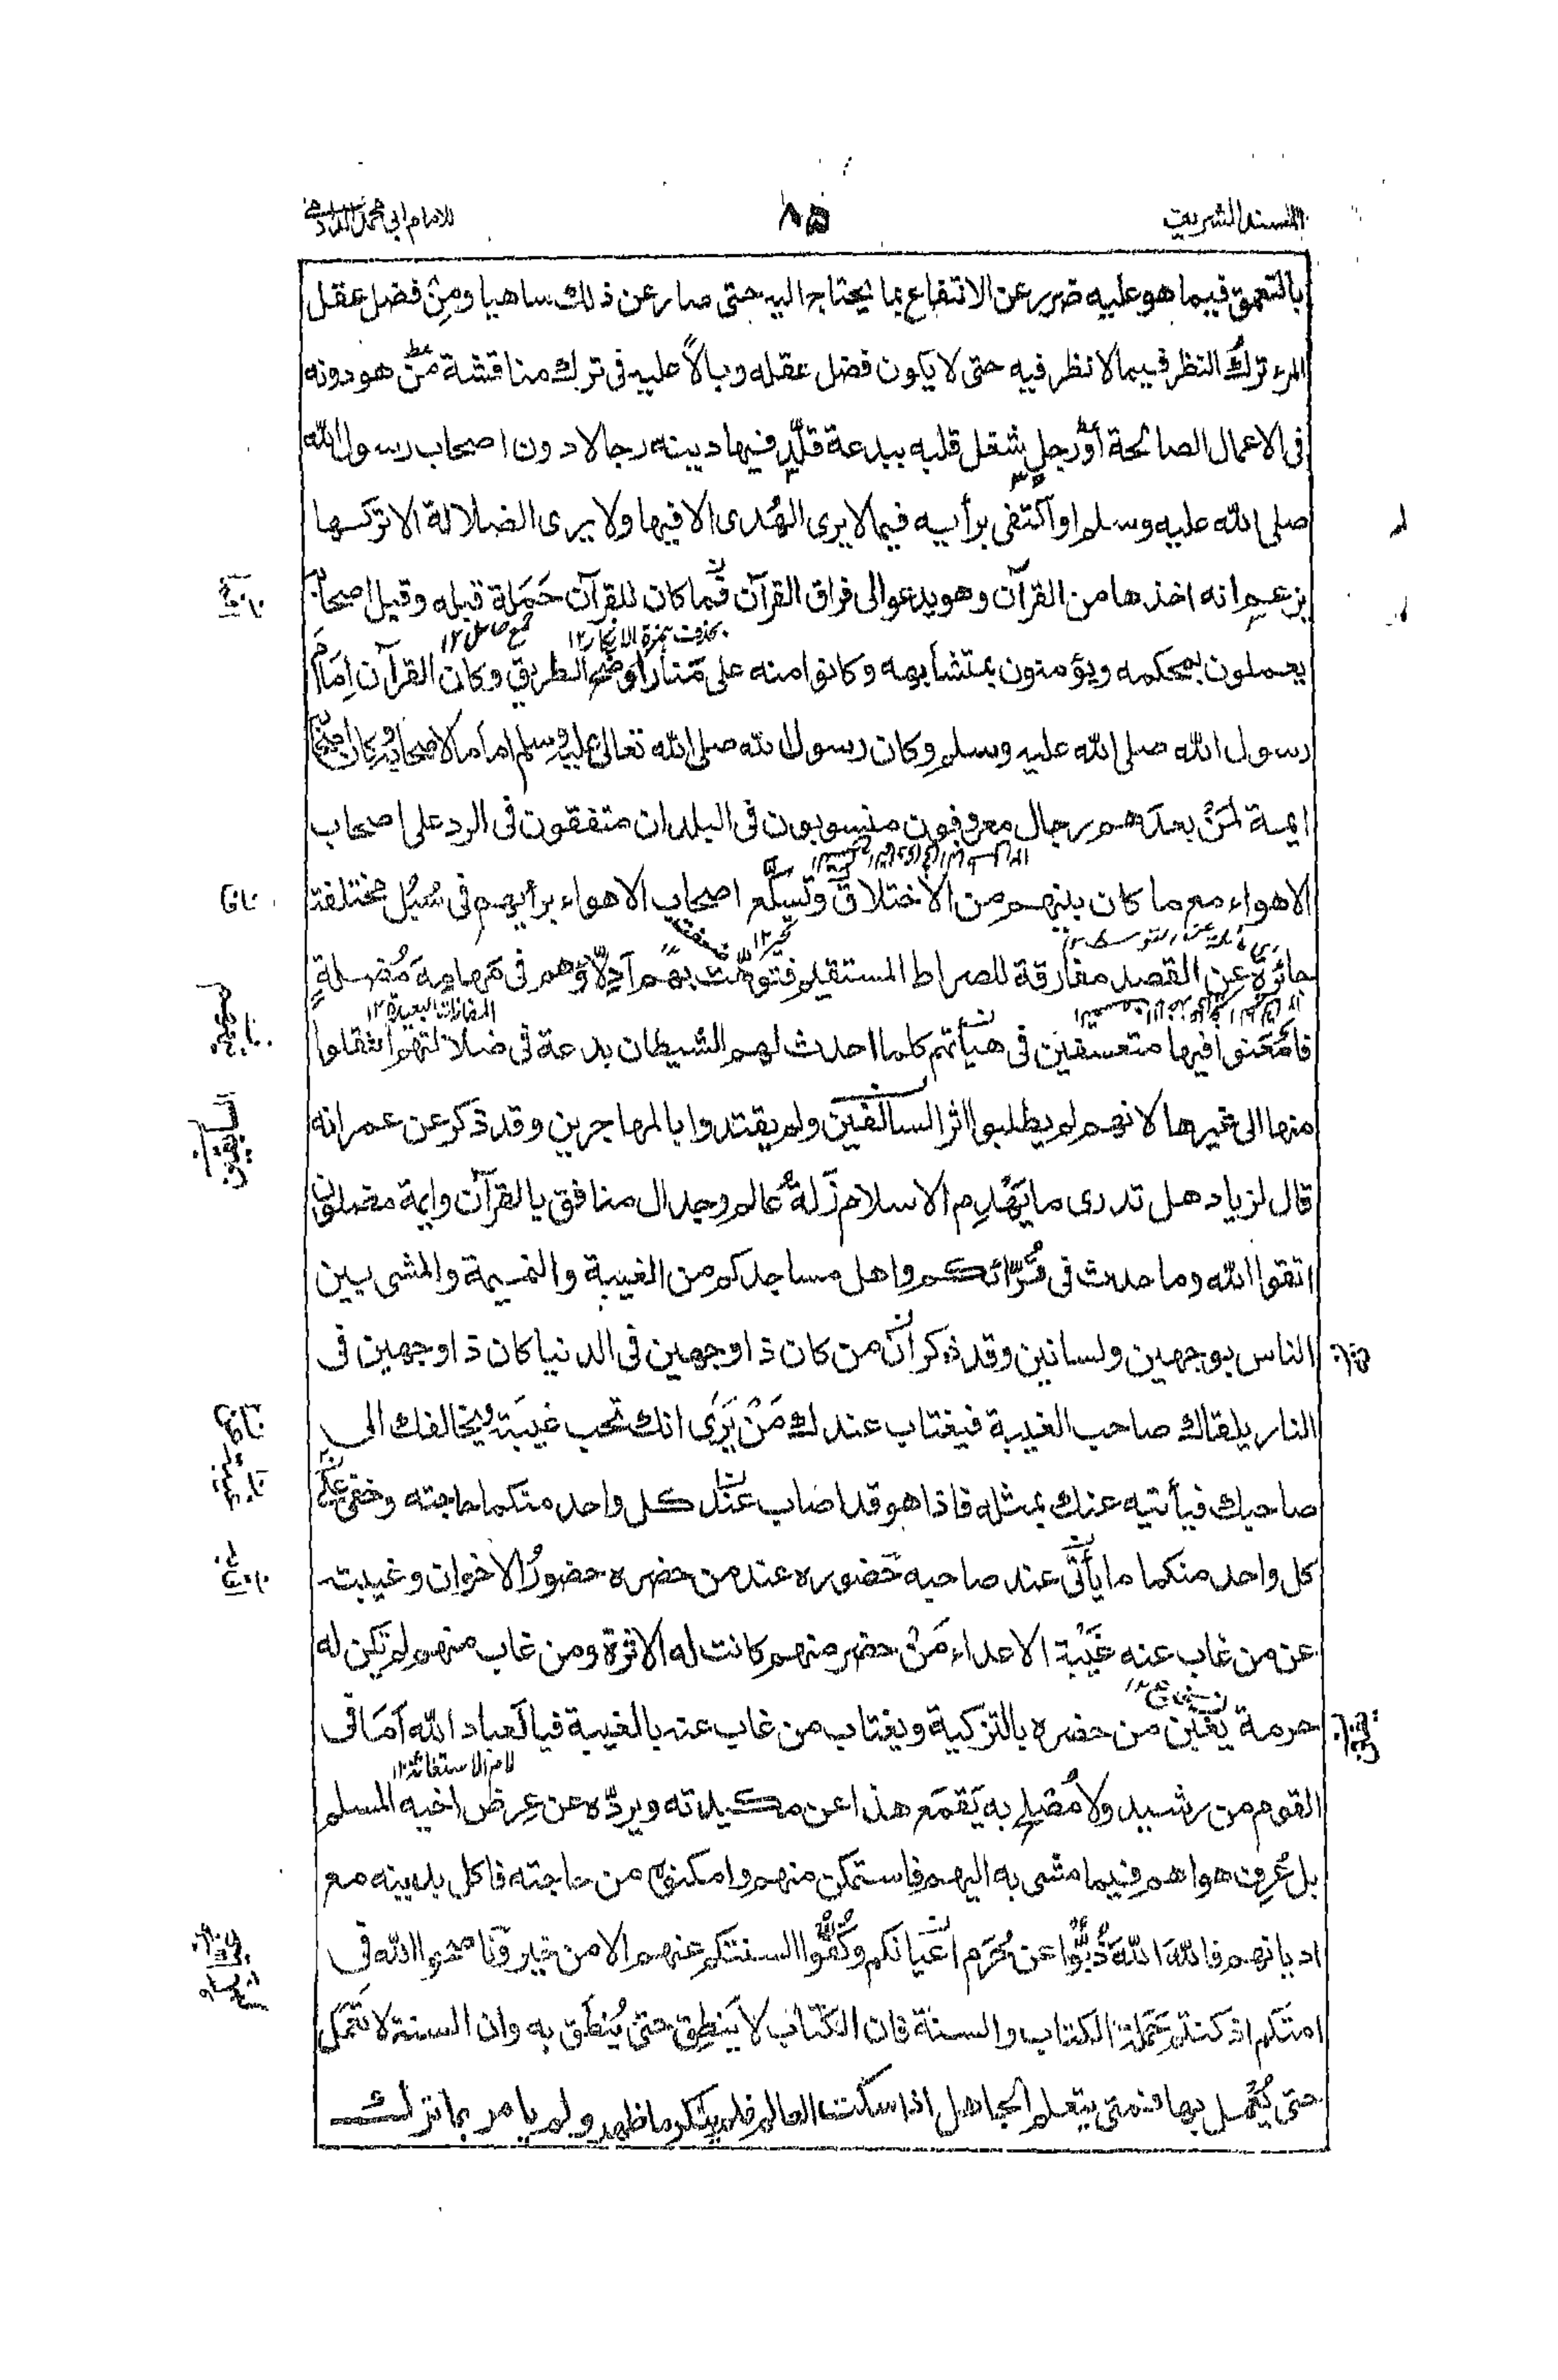 المسند الشريف
٨٥
للامام ابي محمد الدارمي
بالتعمق فيما هو عليه ضرر عن الانتفاع بما يحتاج اليه حتى صار عن ذلك ساهيا ومن فضل عقل
المرء ترك النظر فيما لا نظر فيه حتى لا يكون فضل عقله وبالاً عليه في ترك مناقشة من هو دونه
في الاعمال الصالحة أو رجلٍ شغل قلبه ببدعة قلّد فيها دينه رجالا دون اصحاب رسول الله
صلى الله عليه وسلم او اكتفى برأيه فيما لا يرى الهُدى الا فيها ولا يرى الضلالة الا تركها
يزعم انه اخذها من القرآن وهو يدعو الى فراق القرآن فما كان للقرآن حَمَلة قبله وقبل اصحابه
بحذف همزة الانكار ١٢ جمع حامل ١٢
يعملون بمحكمه ويؤمنون بمتشابهه وكانوا منه على منار اوضح الطريق وكان القرآن اِمَامَ
رسول الله صلى الله عليه وسلم وكان رسول الله صلى الله تعالى عليه وسلم اماما لاصحابه وكان اصحابه
ايمة لمَنْ بعدَهم رجال معروفون منسوبون في البلدان متفقون في الرد على اصحاب
الاهواء مع ما كان بينهم من الاختلاف وتسكّع اصحاب الاهواء برأيهم في سُبُل مختلفة
تحير ١٢
جائرة عن القصد مفارقة للصراط المستقيم فتوهّت بهم ادِلّاؤهم في مَهامِهَ مُضِلةٍ
المفازات البعيدة ١٢
فامعَنوا فيها متعسفين في هيأتهم كلما احدث لهم الشيطان بدعة في ضلالتهم انتقلوا
منها الى غيرها لانهم لم يطلبوا اثر السالفين ولم يقتدوا بالمهاجرين وقد ذكر عن عمر انه
السابقين
قال لزياد هل تدري ما يَهْدِم الاسلام زَلةُ عالم وجدال منافق بالقرآن وايمة مضلون
اتقوا الله وما حدث في قُرّائكم واهل مساجدكم من الغيبة والنميمة والمشي بين
الناس بوجهين ولسانين وقد ذكر ان من كان ذا وجهين في الدنيا كان ذا وجهين في
النار يلقاك صاحب الغيبة فيغتاب عندك مَنْ يَرَى انك تحب غيبَته ويخالفك الى
صاحبك فيأتيه عنك بمثله فاذا هو قد اصاب عند كل واحد منكما حاجته وخفي على
كل واحد منكما ما يأتى عند صاحبه حُضوره عند من حضره حضورُ الاخوان وغيبته
عن من غاب عنه غَيْبَة الاعداء مَنْ حضر منهم كانت له الاثرة ومن غاب منهم لم تكن له
حرمة يَفتِن من حضره بالتزكية ويغتاب من غاب عنه بالغيبة فيا لَعباد الله اَمَا في
لام الاستغاثة ١٢
القوم من رشيد ولا مُصلح به يَقمَع هذا عن مكيدته ويردّه عن عِرض اخيه المسلم
بل عُرِف هواهم فيما مشى به اليهم فاستمكن منهم وامكنوه من حاجته فاكل بدينه مع
اديانهم فاللهَ اللهَ ذُبُّوا عن حُرَم اعيانكم وكُفُّوا السنتكم عنهم الا من خير وناصحوا الله في
امتكم اذ كنتم حَمَلة الكتاب والسنة فان الكتاب لا يَنطِق حتى يُنطَق به وان السنة لا تعْمَل
حتى يُعْمل بها فمتى يتعلم الجاهل اذا سكت العالم فلم ينكر ما ظهر ولم يامر بما ترك